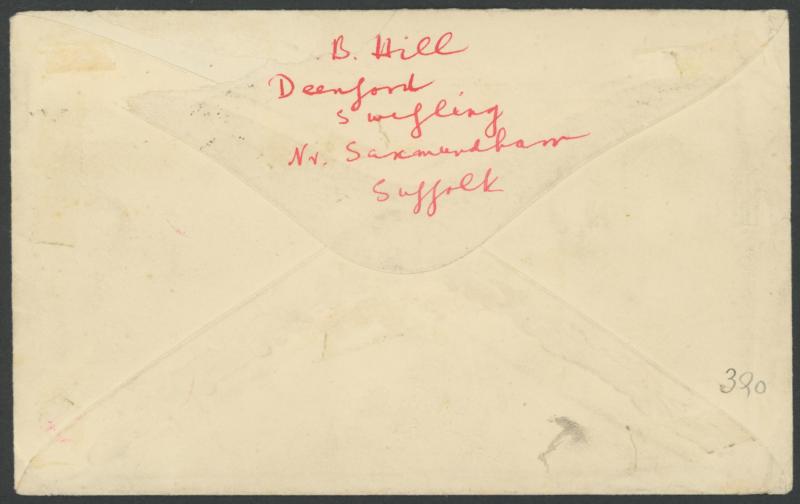 B. Hill
Deenford
Swefling
Nr. Saxmundham
Suffolk
390